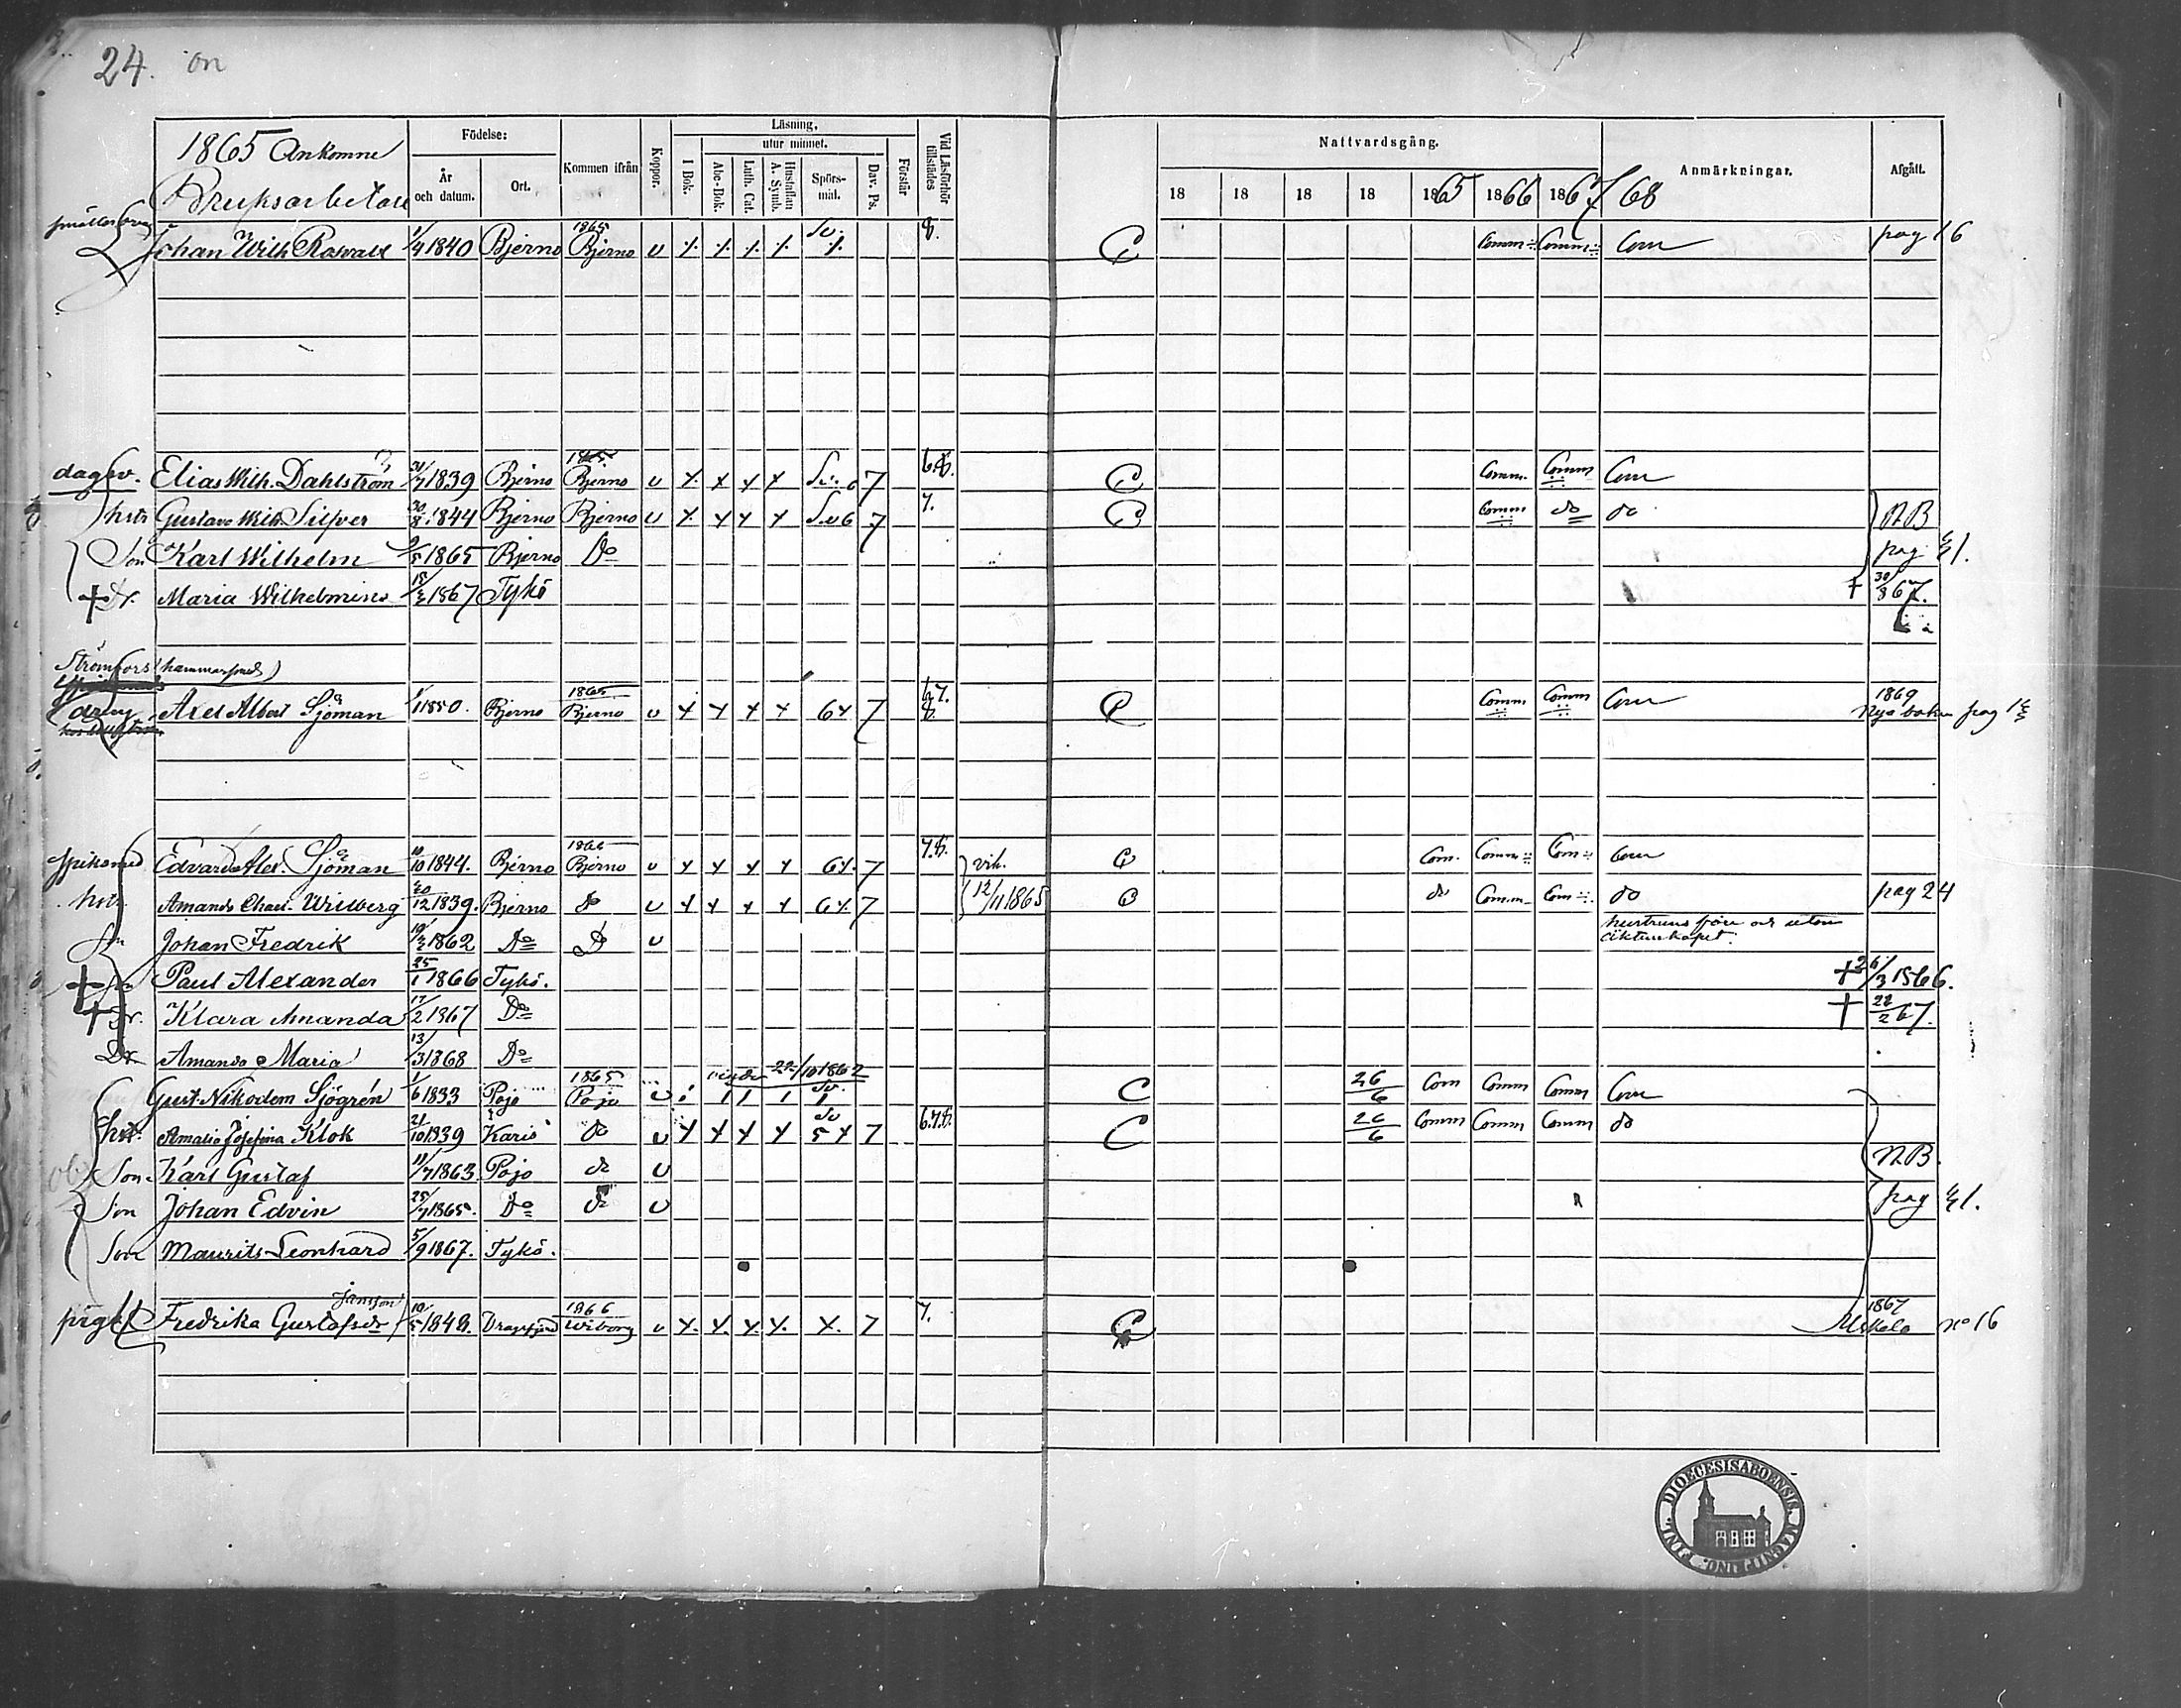 24.
1865 Ankomne
Bruksarbetare
Födelse:
År och datum.
Ort.
Kommen ifrån
Koppor.
Läsning,
I Bok.
utur minnet.
Abc-Bok.
Luth. Cat.
Hustaflan A. Symb.
Spörs-mål.
Dav. Ps.
Förstår
Vid Läsförhör tillstädes
Nattvardsgång.
18 18 18 18 1865 1866 1867 68
Anmärkningar.
Afgått.
Johan Wilh. 1/4 1840 Bjerno 1865 Bjerno v Sv. 8. Comm Comm Com pag 16
Elias Wilh. Dahlström 1839 Bjerno 1865 Bjerno v Sv. 6 7 6.8. Comm. Comm Com
hstr Gustava Wilh. Silfver 30/8 1844 Bjerno Bjerno v Sv 6 7 7. Comm do do NB
Son Karl Wilhelm 1865 Bjerno Do pag
† Dr. Maria Wilhelmina 1867 Tykö † 30/8 67.
Strömfors (hammarsmed)
dräng Axel Albert Sjöman 1850. Bjerno 1865 Bjerno v 6 7 67. 8. Comm Comm Com 1869 Nya boken pag
Spiksmed Edvard Alex. Sjöman 10/10 1844. Bjerno Bjerno v 6 7 7.8. vih. Com. Comm Com Com
hstr Amanda Wilberg 20/12 1839. Bjerno do v 6 7 12/11 1865 do Comm Com do pag 24
Son Johan Fredrik 1862 Do Do v hustruns före och utom äktenskapet.
† Son Paul Alexander 25/1 1866 Tykö. † 26/3 1866.
† Dr. Klara Amanda 17/2 1867 Do † 22/2 67.
Dr Amanda Maria 13/3 1868 Do
Gust. Nikodem Sjögrén 1/6 1833 Pojo 1865 Pojo v 22/10 1862 Sv. 26/6 Com Comm Comm Com
hstr. Amalia Josefina Klok 21/10 1839 Karis do v Sv 5 7 6.7.8. 26/6 Comm Comm Comm do
Son Karl Gustaf 11/7 1863. Pojo do v NB.
Son Johan Edvin 25/7 1865. Do do v pag
Son Maurits Leonhard 5/9 1867. Tykö.
Jansson
piga Fredrika Gustafsdr 19/5 1848. Dragsfjärd 1866 Wiborg v 7 7. 1867 no 16
DIOECESIS ABOENSIS